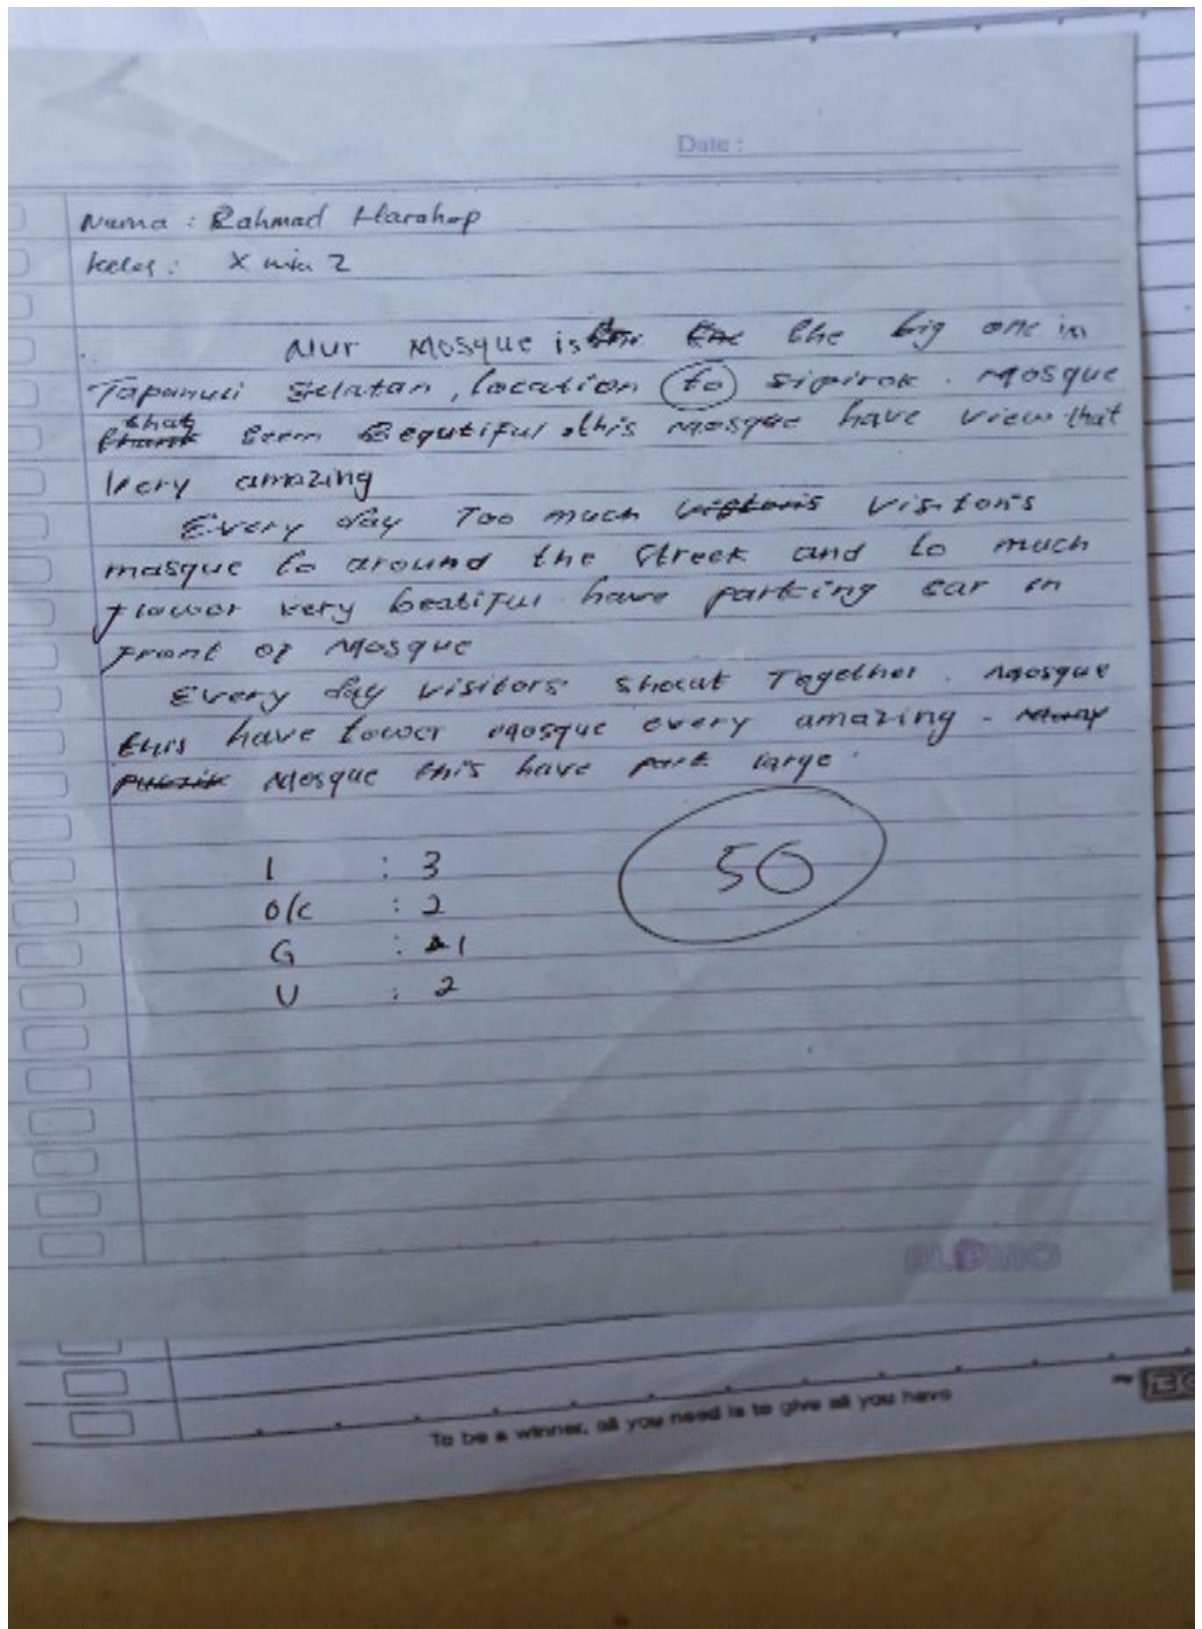 Date :
Nama : Rahmad Harahap
Kelas : X mia 2
Nur Mosque is the big one in
Tapanuli Selatan, location to sipirok. Mosque
that Beautiful this Mosque have view that
Very amazing
Every day Too much visitors
masque to around the Streek and to much
Flower very beatiful have parking car in
Front of Mosque
Every day visitors Together. Mosque
this have tower Mosque every amazing.
Mosque this have park large.
I : 3
O/C : 2
G : 1
V : 2
50
To be a winner, all you need is to give all you have